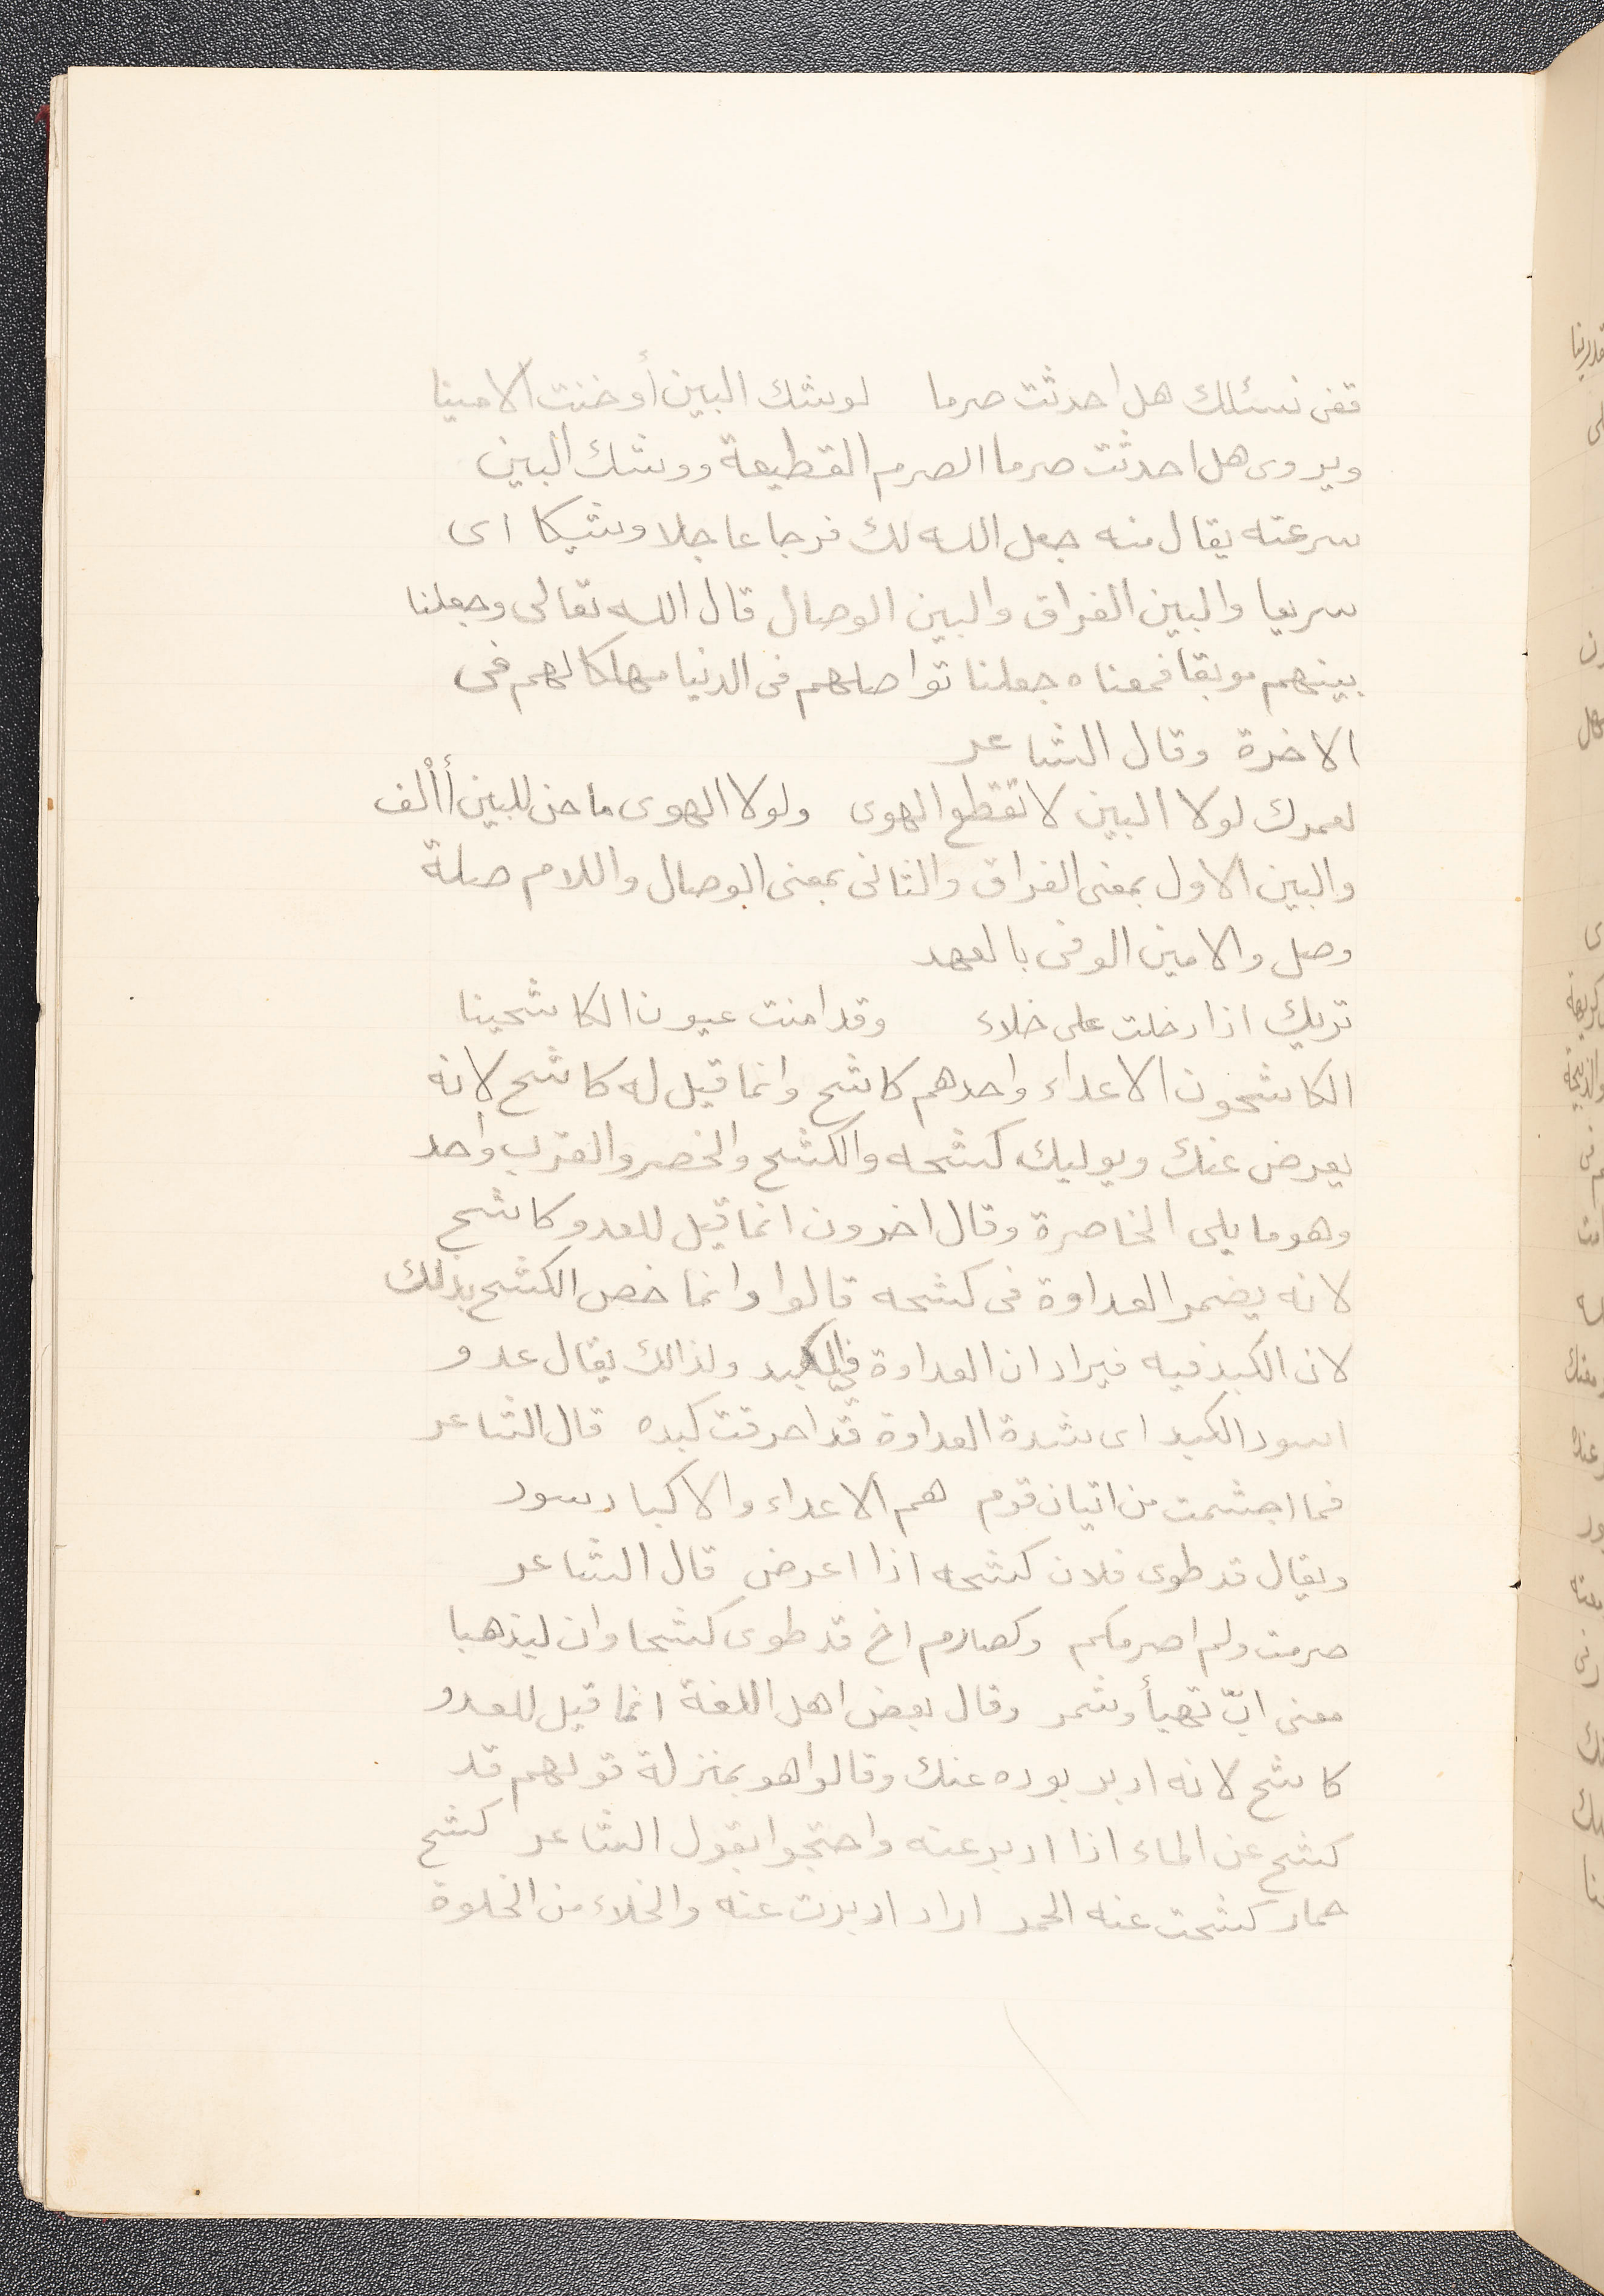 قفى نسئلك هل احدثت صرما لوشك البين أو خنت الامينا
ويروى هل احدثت صرما الصرم القطيعة ووشك البين
سرعته يقال منه جعل الله لك فرجا عاجلا وشيكا اى
سريعا والبين الفراق والبين الوصال قال الله تعالى وجعلنا
بينهم موبقا فمعناه جعلنا تواصلهم فى الدنيا مهلكا لهم فى
الاخرة وقال الشاعر
لعمرك لولا البين لا تقطع الهوى ولولا الهوى ما حن للبين أألف
والبين الاول بمعنى الفراق والثانى بمعنى الوصال واللام صلة
وصل والامين الوفى بالعهد
تريك اذا دخلت على خلاء وقد امنت عيون الكاشحينا
الكاشحون الاعداء واحدهم كاشح وانما قيل له كاشح لانه
يعرض عنك ويوليك كشحه والكشح والخصر والقرب واحد
وهو ما يلى الخاصرة وقال اخرون انما قيل للعدو كاشح
لانه يضمر العداوة فى كشحه قالوا وانما خص الكشح بذلك
لان الكبد فيه فيراد ان العداوة في الكبد ولذالك يقال عدو
اسود الكبد اى شدة العداوة قد احرقت كبده قال الشاعر
فما اجشمت من اتيان قوم هم الاعداء والاكباد سود
ويقال قد طوى فلان كشحه اذا اعرض قال الشاعر
صرمت ولم اصرمكم وكصارم اخ قد طوى كشحا وان ليذهبا
معنى ابّ تهيأ وشمر وقال بعض اهل اللغة انما قيل للعدو
كاشح لانه ادبر بوده عنك وقالوا هو بمنزلة قولهم قد
كشح عن الماء اذا ادبر عنه واحتجوا بقول الشاعر كشح
حمار كشحت عنه الحمر اراد ادبرت عنه والخلاء من الخلوة